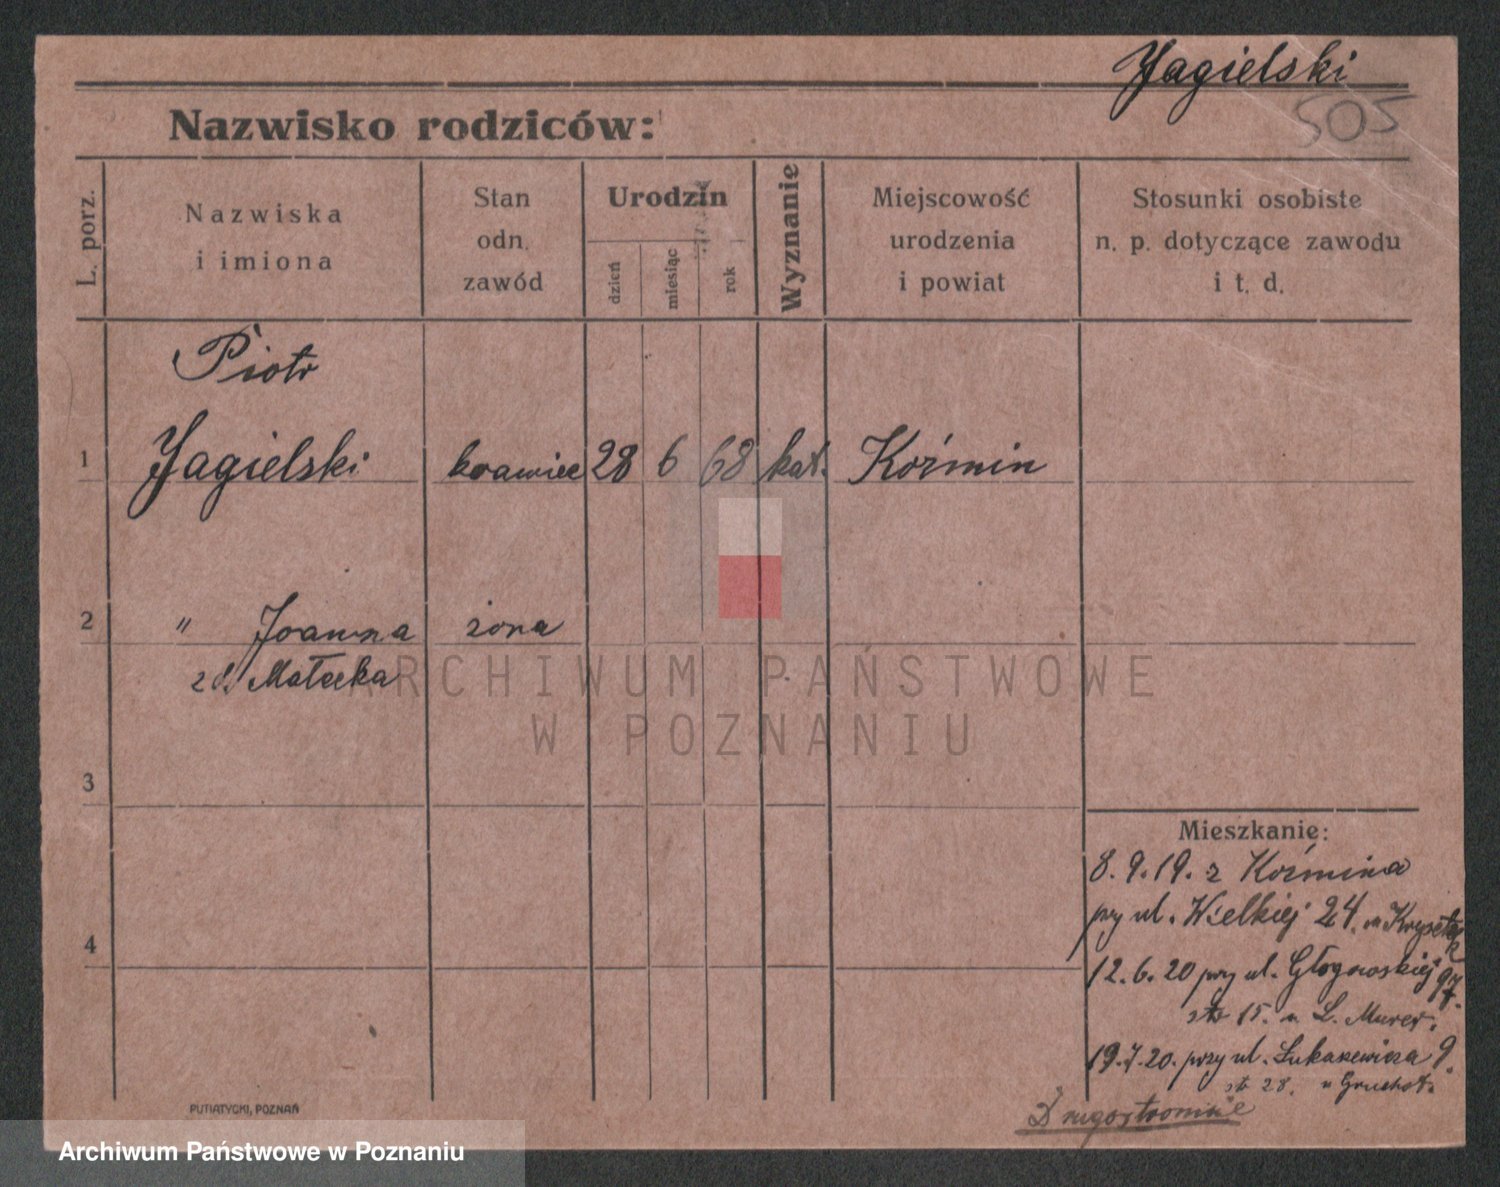 Jagielski
505
Nazwisko rodziców:
L. porz.
Nazwiska
i imiona
Stan
odn.
zawód
Urodzin
dzień
miesiąc
rok
Wyznanie
Miejscowość
urodzenia
i powiat
Stosunki osobiste
n. p. dotyczące zawodu
i t. d.
Piotr
1 Jagielski krawiec 28 6 68 kat. Koźmin
2 " Joanna żona
zd. Małecka
3
4
ARCHIWUM PAŃSTWOWE
W POZNANIU
Mieszkanie:
8.9.19. z Koźmina
przy ul. Wielkiej 24. u Krysztk
12.6.20 przy ul. Głogowskiej 97.
str 15. u L. Murer.
19.7.20. przy ul. Łukaszewicza 9.
str 28. u Gruchot.
Drugostronnie
PUTIATYCKI, POZNAŃ
Archiwum Państwowe w Poznaniu